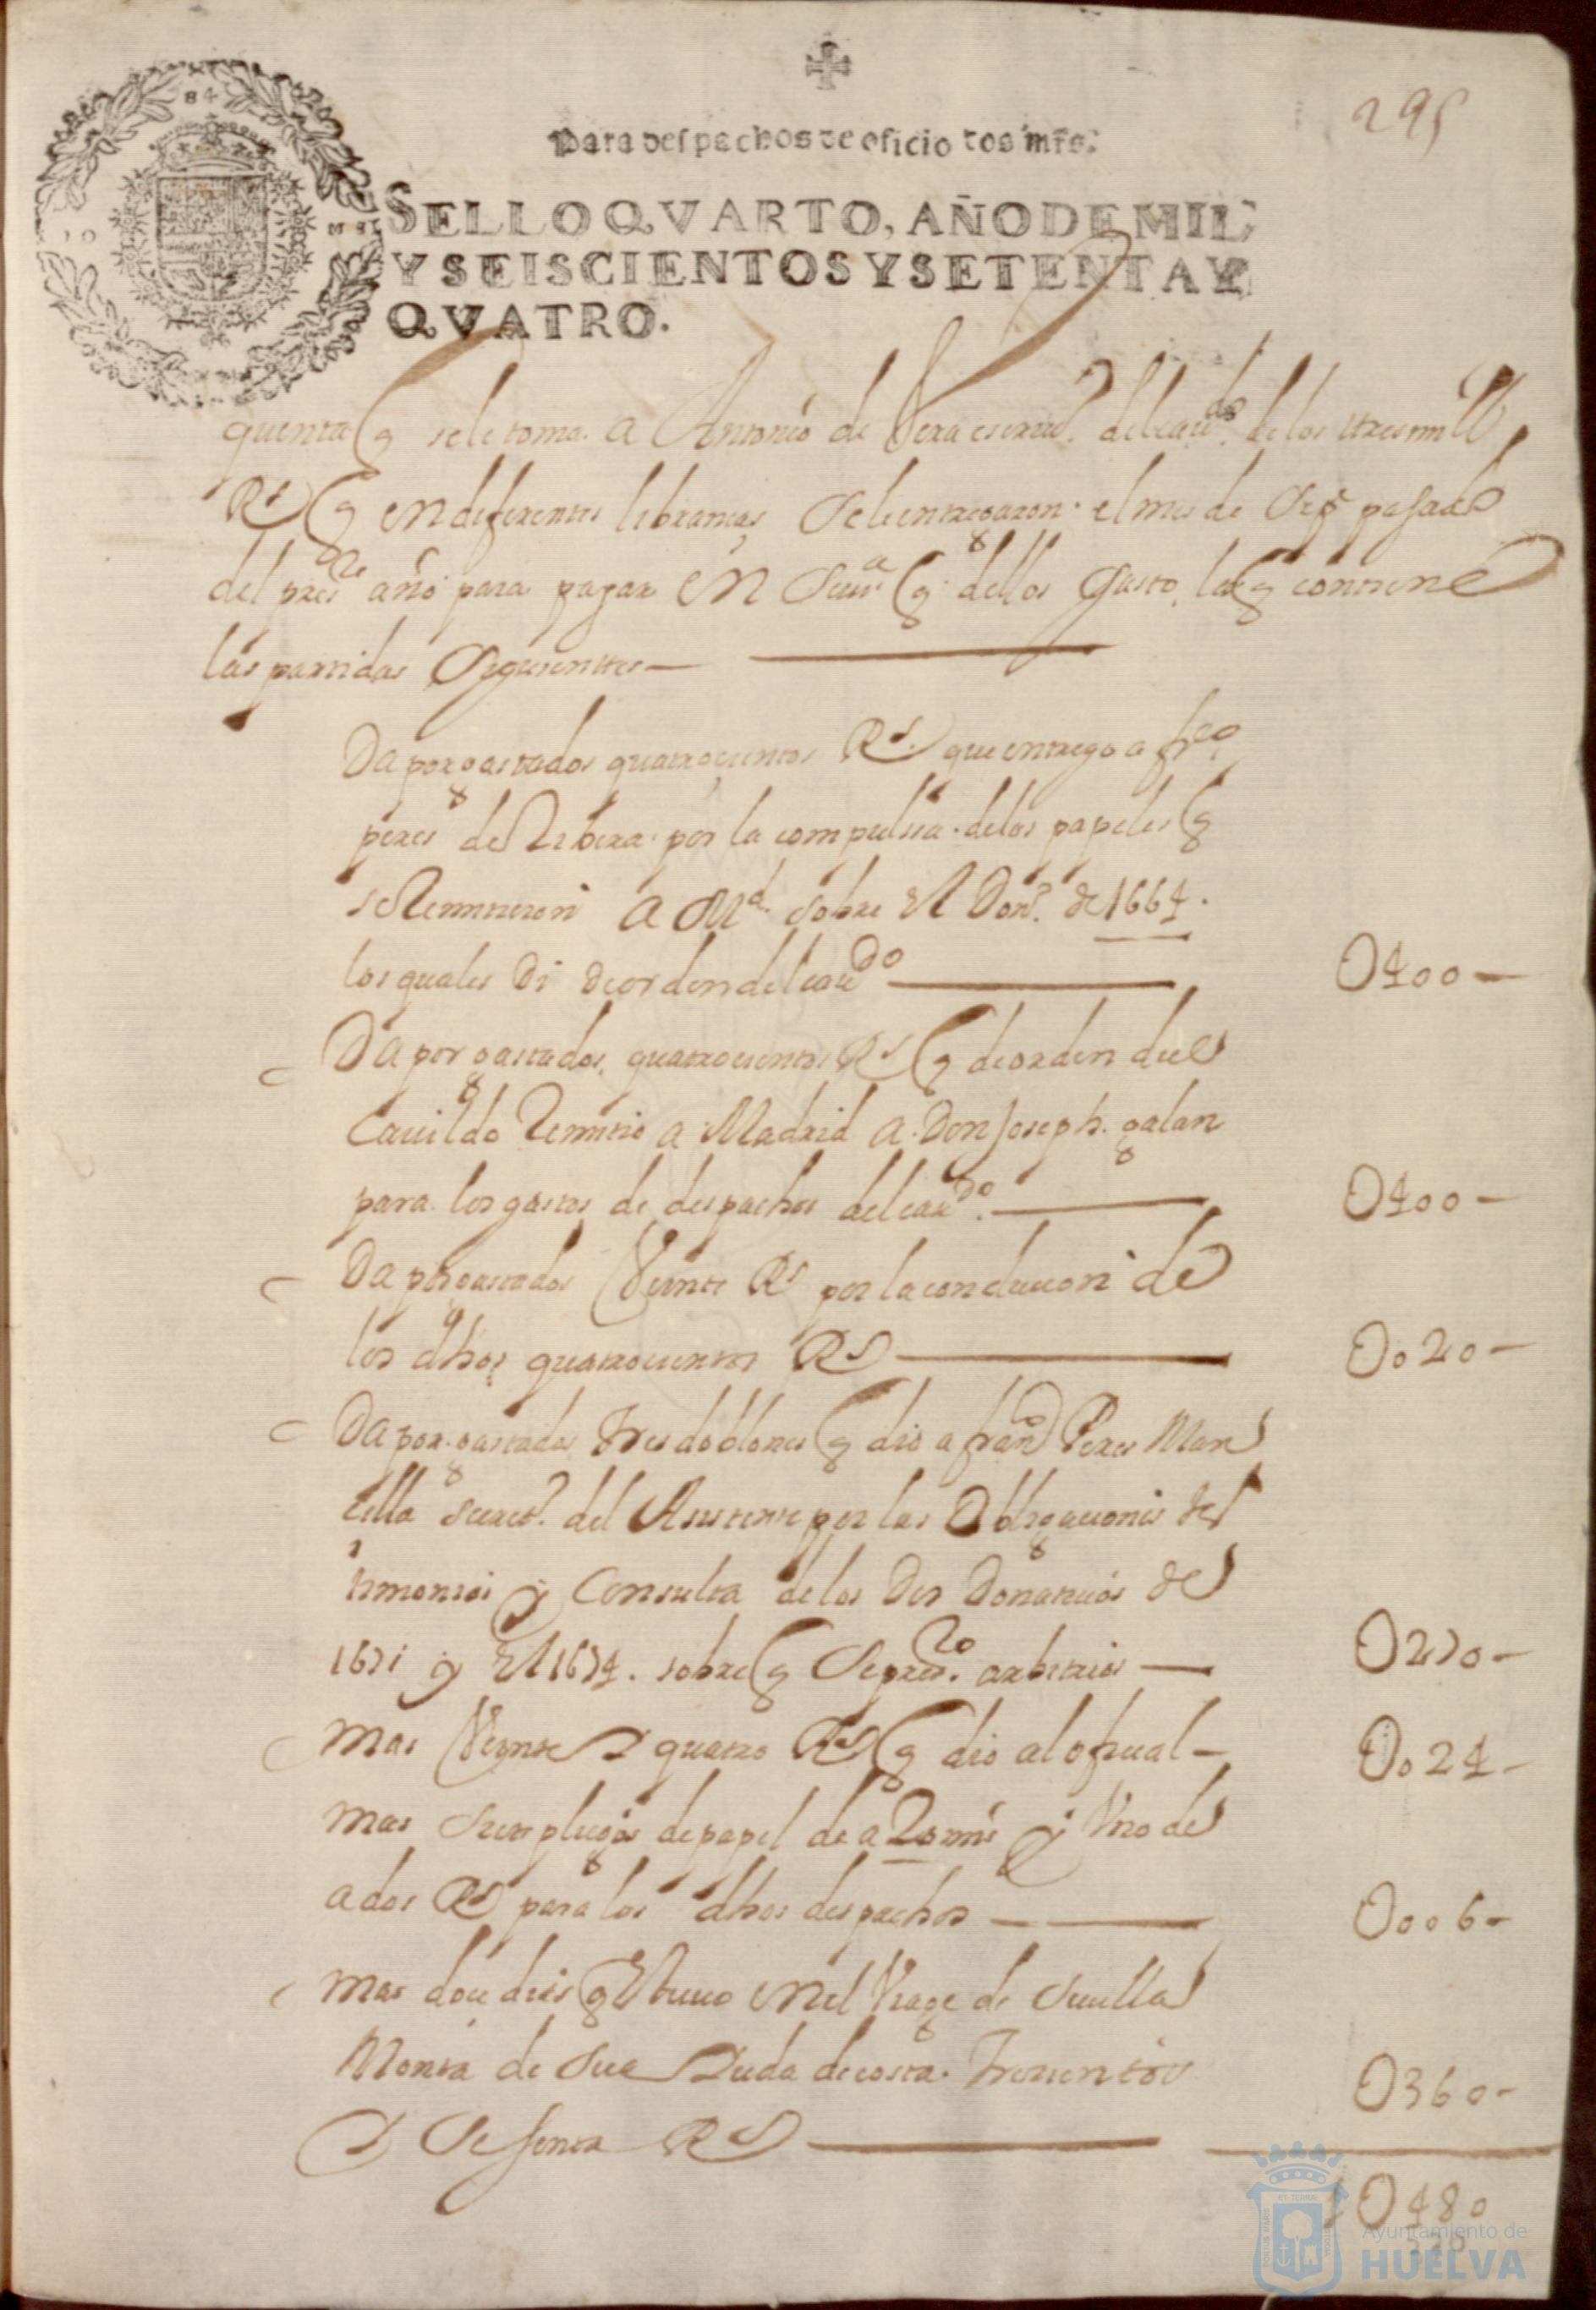 295
Para despachos de oficio dos mrs.
SELLO QVARTO, AÑO DE MIL
Y SEISCIENTOS Y SETENTA Y
QVATRO.
84
quenta q se le toma a Antonio de Vera escriuo. del caudo. de los tres mill
Rs q en diferentes libranças se le entregaron el mes de Sepe pasado
del preste año para pagar en Seuа q dellos gasto, la q contiene
las partidas siguientes
Da por gastados quatroçientos Rs. que entrego a frco.
peres de Ribera por la compulsa de los papeles q
se Remitieron a Md. sobre el Dono. de 1664.
los quales di de orden del caudo
0400
Da por gastados quatrocientos Rs q de orden del
Cauildo Remitio a Madrid a Don Joseph galan
para los gastos de despachos del caudo.
0400
Da por gastados Veinte Rs por la conducion de
los dhos quatrocientos Rs
0020
Da por gastados tres doblones q dio a frano Peres Man
cilla secreto. del Asistente por las Obligaciones tes
timonios y Consulta de los dos Donatiuos de
1671 y el 1674. sobre q se presto. arbitrios
0210
mas Veinte y quatro Rs q dio al ofiçial
0024
mas siete pliegos de papel de a 20 ms y Uno de
a dos Rs para los dhos despachos
0006
mas doce dias q Estuuo en el Viage de Seuilla
Monta de su aiuda de costa trecientos
y sesenta Rs
0360
10480
Ayuntamiento de
HUELVA